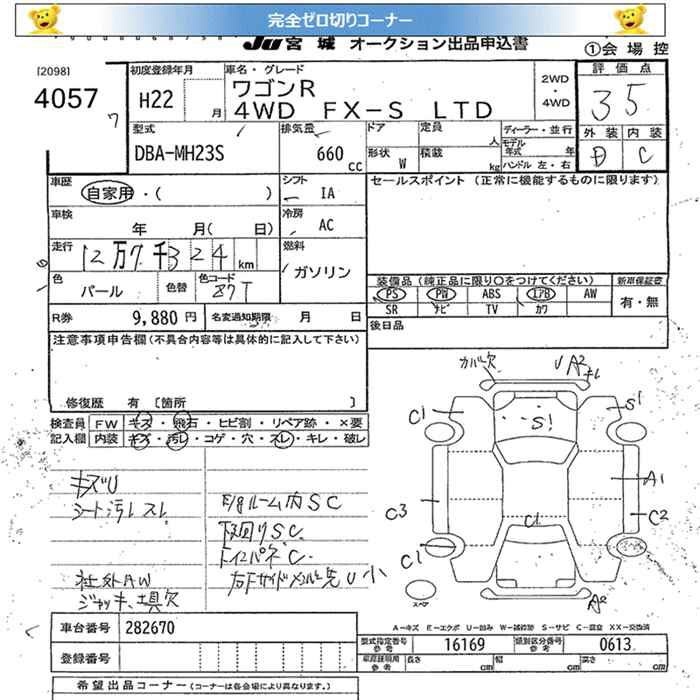 完全ゼロ切りコーナー
JU 宮城 オークション出品申込書
①会場控
[2098]
4057
7
初度登録年月
H22 月
車名・グレード
ワゴンR
4WD FX-S LTD
2WD
・
4WD
評価点
3 5
外装 内装
D C
型式
DBA-MH23S
排気量
660 CC
ドア
形状 W
定員 人
積載 kg
ディーラー・並行
モデル年式 年
ハンドル 左・右
車歴
自家用・( )
シフト IA
セールスポイント (正常に機能するものに限ります)
車検
年 月( 日)
冷房 AC
走行
12万7千324 km
燃料
ガソリン
色
パール
色替
色コード
Z7T
装備品(純正品に限り○をつけてください)
新車保証書
PS PW ABS エアB AW
SR ナビ TV カワ
有・無
R券 9,880円
名変過知期限 月 日
後日品
注意事項申告欄(不具合内容等は具体的に記入して下さい)
修復歴 有 〔箇所 〕
検査員 FW キズ・飛石・ヒビ割・リペア跡・×要
記入欄 内装 キズ・汚レ・コゲ・穴・スレ・キレ・破レ
キズU
シート汚レ スレ
E/gルーム内SC
下廻りSC
トランクパネC
社外AW
ジャッキ、工具欠
カバー欠
U A2 キレ
C1
S1
S1
A1
C3
C2
C1
C1
A2
スペア
A-キズ E-エクボ U-凹み W-補修跡 S-サビ C-腐食 XX-交換済
車台番号 282670
登録番号
型式指定番号 参考 16169
類別区分番号 参考 0613
車庫証明用 参考 長さ cm 幅 cm 高さ cm
希望出品コーナー(コーナーは各会場により異なります。)